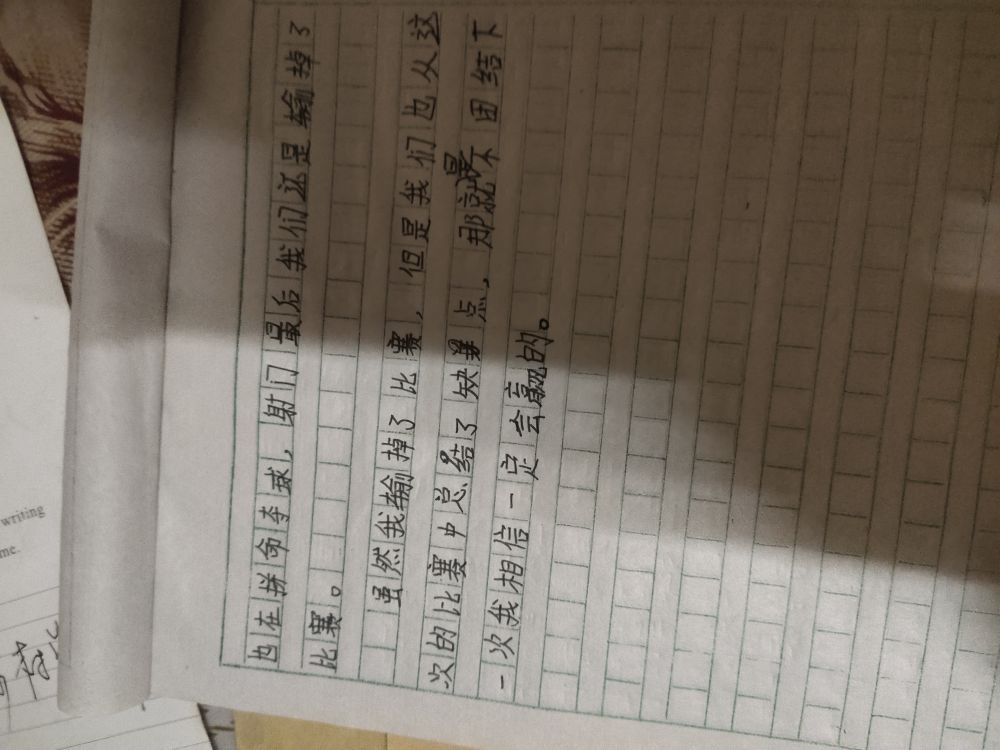 也在拼命夺球，射门最后我们还是输掉了
比赛。
虽然我输掉了比赛，但是我们也从这
次的比赛中总结了缺点，那就是不团结下
一次我相信一定会赢的。
writing
me.